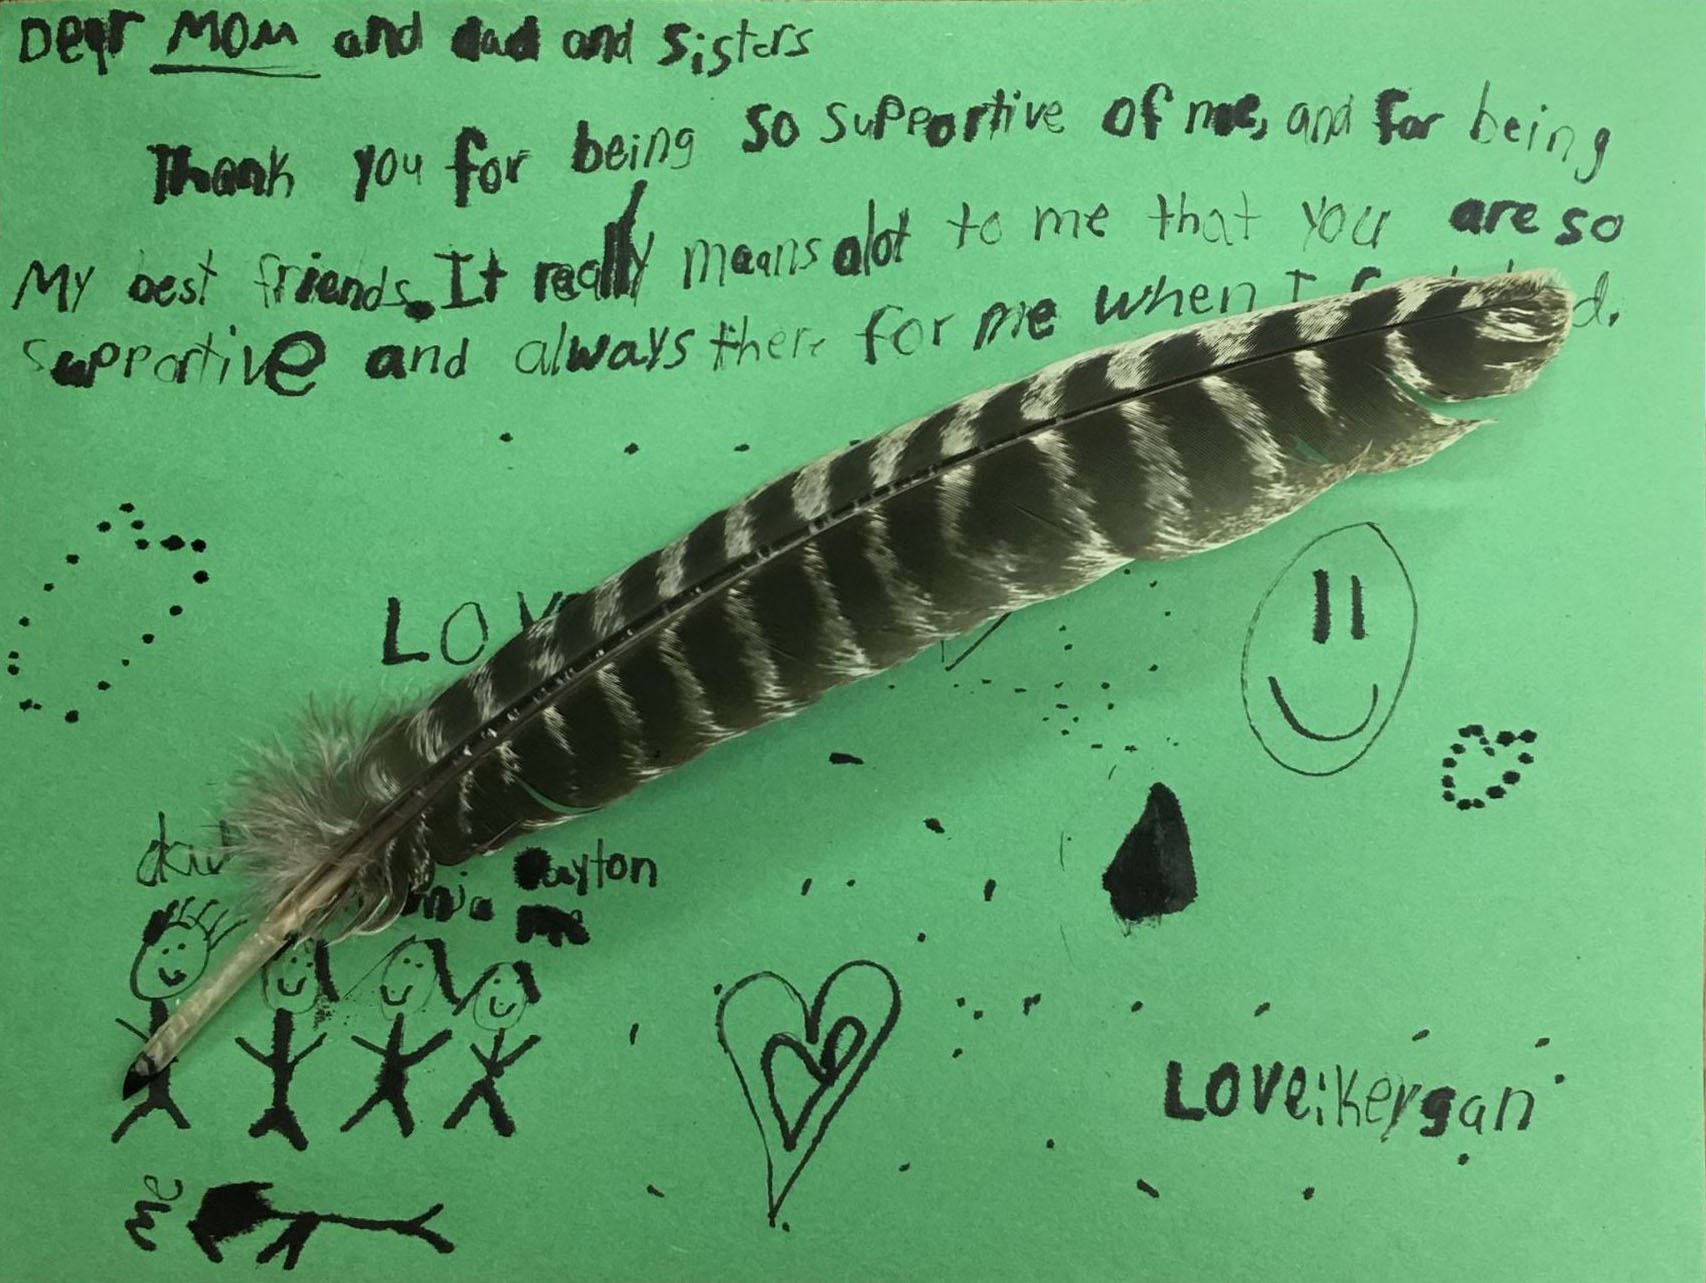 Dear Mom and dad and sisters
Thank you for being so supportive of me, and for being
My best friends. It really means alot to me that you are so
supportive and always there for me when I
Layton
me
LOVE:Keygan
me